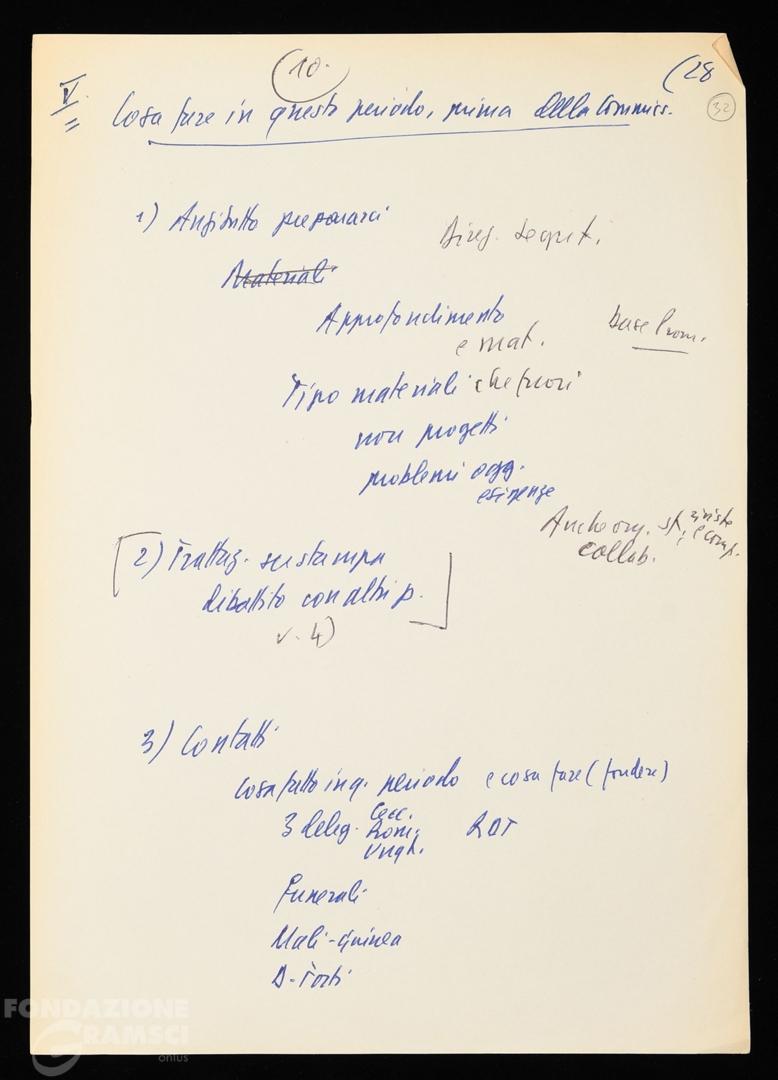 10.
(28
32
V.
Cosa fare in questo periodo, prima della Commiss.
1) Anzitutto prepararci
Direz. Segret.
Materiali
Approfondimento
e mat.
base Prom.
Tipo materiali che fuori
non progetti
problemi ogg.
esigenze
Anche org. st. riviste
e comp.
collab.
2) Trattaz. su stampa
dibattito con altri p.
v. 4)
3) Contatti
Cosa fatto in q. periodo e cosa fare (fondere)
3 deleg. Cec.
Rom. RDT
Ungh.
Funerali
Mali-Guinea
FONDAZIONE
GRAMSCI
onlus